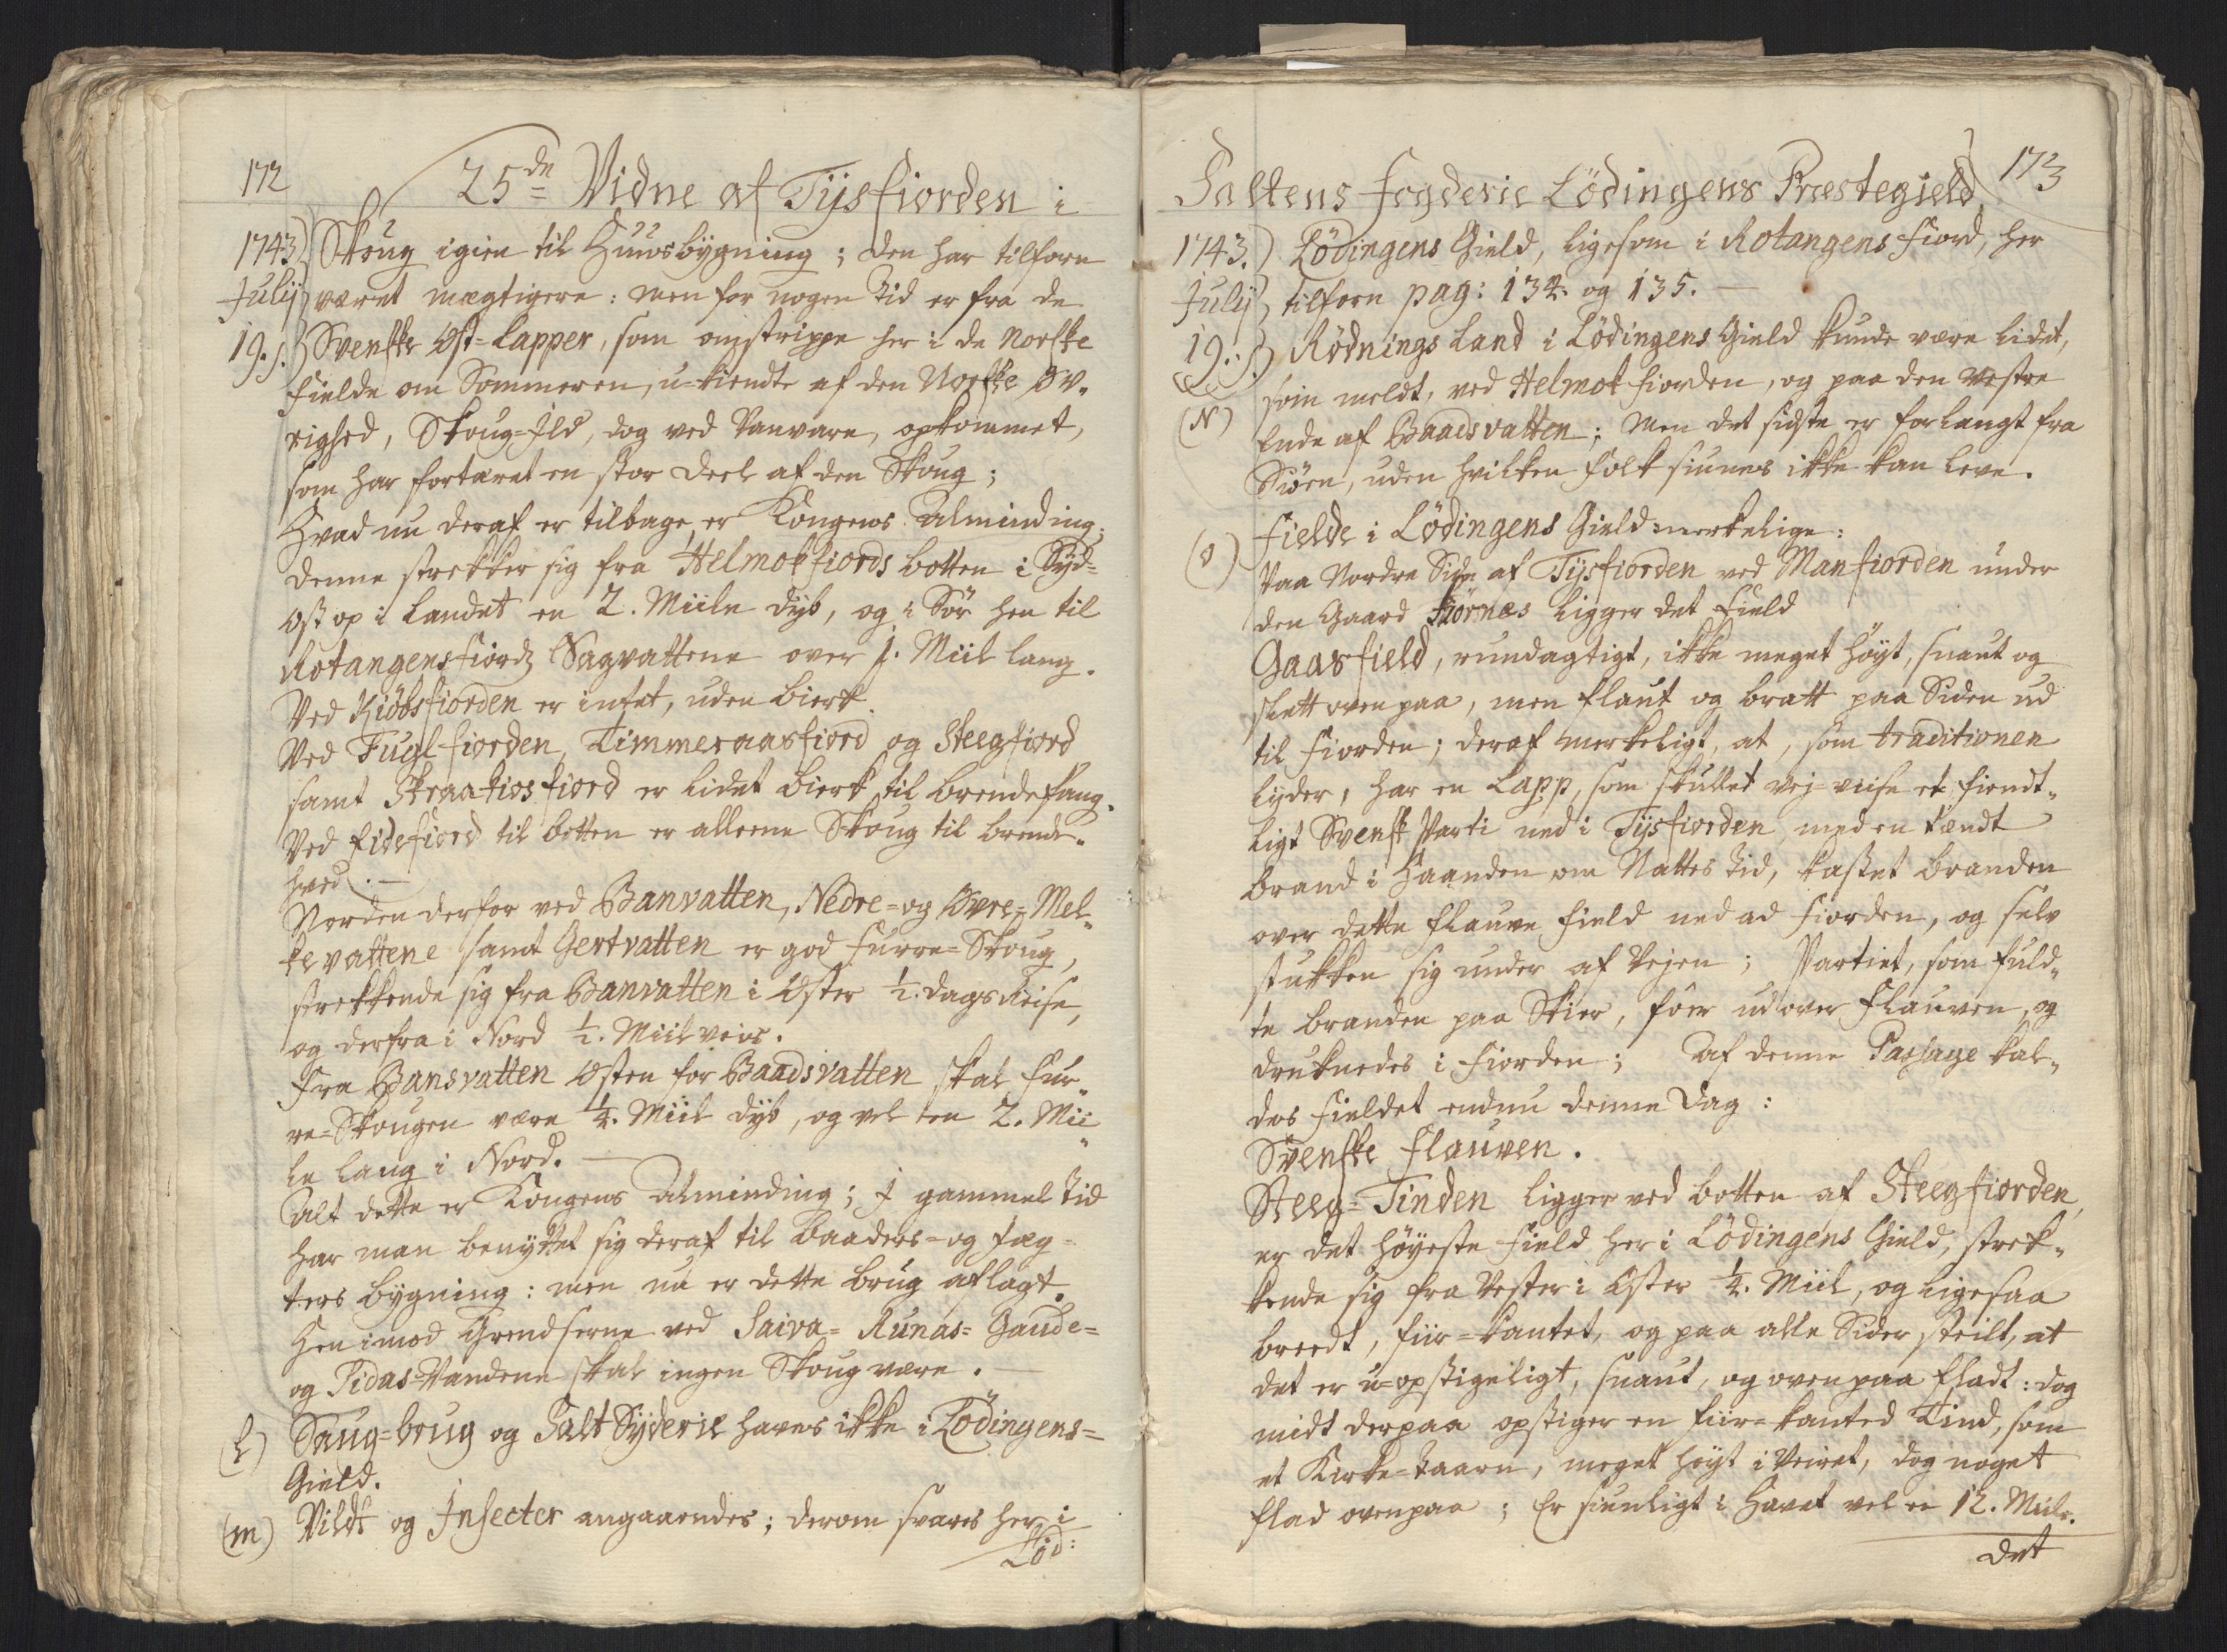 172
25de Vidne af Tysfiorden i
1743) Skoug igien til Huusbygning; den har tilforn
Julij) været mægtigere: men for nogen Tid er fra de
19. s.) Svenske Ost-Lapper, som omstrippe her i de Norske
Fielde om Sommeren, u-kiendte af den Norske Øv„
righed, Skoug-Ild, dog ved Vanvare, opkommet,
som har fortæret en stor Deel af den Skoug;
Hvad nu deraf er tilbage, er Kongens Alminding;
denne strekker sig fra Helmokfiords botten i Syd-
Ost op i Landet en 2. Miile dyb, og i Sør hen til
Rotangensfiords Sagvattene over 1. Miil lang.
Ved Kiöbsfiorden er intet, uden Birk.
Ved Fuglfiorden, Timmeraasfiord og Steegfiord
samt Skraakiosfiord er lidet Birk til Brendefang.
Ved Eidefiord til botten er alleene Skoug til brende„
hved. —
Norden derfor ved Banvatten, Nedre- og Øvre-Mel„
kevattene samt Gertvatten er god Furre-Skoug,
strekkende sig fra Banvatten i Øster ½. dags Reise,
og derfra i Nord ½. Miilveis.
Fra Bansvatten Østen for Baadsvatten skal Fur„
re-Skougen være ¼. Miil dyb, og vel en 2. Mii„
le lang i Nord. —
Alt dette er Kongens Alminding; I gammel Tid
har man benyttet sig deraf til Baaders- og Jæg-
ters bygning: men nu er dette brug aflagt.
Hen imod Grendserne ved Saiva- Runas- Gaude-
og Pidas-Vandene skal ingen Skoug være. —
(l) Saug-brug og Salt Syderie haves ikke i Lödingens-
Gield.
(m) Vildt og Insecter angaaendes; derom svares her i
Löd:
Saltens Fogderie Lödingens Præstegield. 173
1743.) Lödingens Gield, ligesom i Rotangens Fiord, her
Julij) tilforn pag: 134. og 135. —
19. s.) Rödnings Land i Lödingens Gield kunde være lidet,
(N) som meldt, ved Helmokfiorden, og paa den Vestre
Ende af Baadsvatten; men det sidste er for langt fra
Siöen, uden hvilken Folk siunes ikke kan leve.
(o) Fielde i Lödingens Gield merkelige:
Paa Nordre Side af Tysfiorden ved Manfiorden under
den Gaard Kiörnæs ligger det Field
Gaasfield, rundagtigt, ikke meget höyt, snaut og
slett oven paa, men flaut og bratt paa Siden ud
til Fiorden; deraf merkeligt, at, som traditionen
lyder, har en Lapp, som skullet vej-viise et fiendt„
ligt Svensk Parti ned i Tysfiorden med en tændt
Brand i Haanden om Nattes Tid, kastet Branden
over dette flauve Field ned ad Fiorden, og selv
stukken sig under af Vejen; Partiet, som fuld„
te Branden paa Skier, föer ud over Flauven, og
druknedes i Fiorden; Af denne Passage kal„
des Fieldet endnu denne Dag:
Svenske Flauven.
Steeg-Tinden ligger ved botten af Steegfiorden,
er det höyeste Field her i Lödingens Gield, strek„
kende sig fra Vester i Øster ¼. Miil, og ligesaa
breedt, fiir-kantet, og paa alle Sider steilt, at
det er u-opstigeligt, snaut, og oven paa fladt: dog
midt derpaa opstiger en fiir-kanted Tind, som
et Kirke-Taarn, meget höyt i Veiret, dog noget
flad oven paa; Er siunligt i Havet vel en 12. Miile.
det